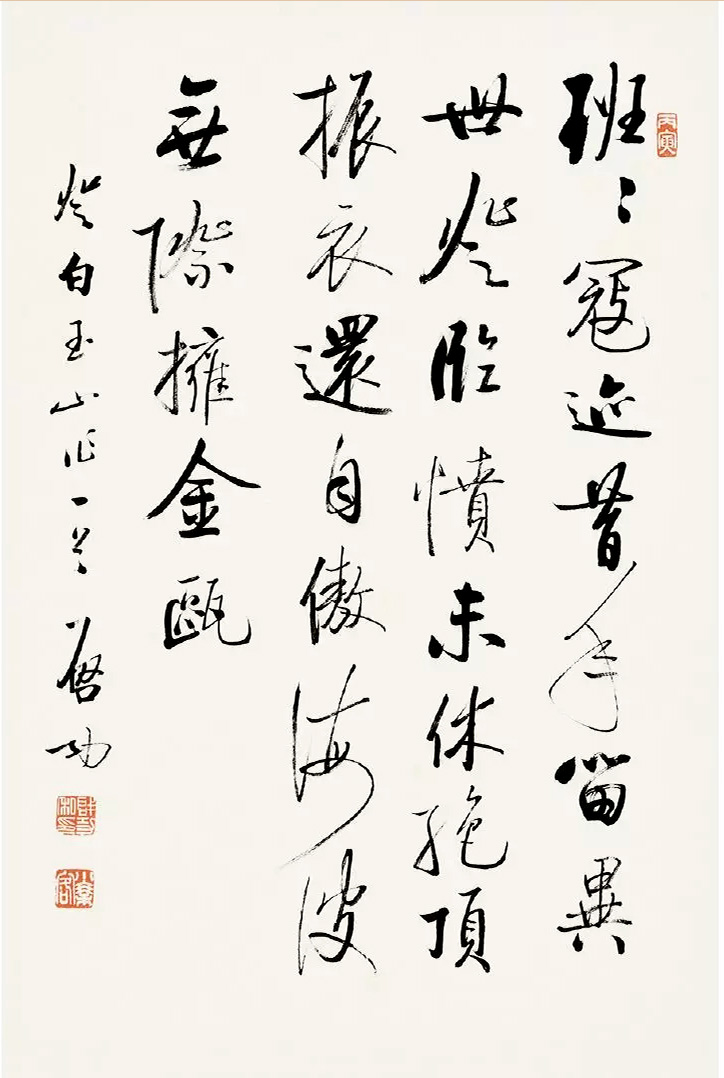 丙寅
班〻寇迹昔年留異
世登臨憤未休絕頂
振衣還自傲海波
無際擁金甌
登白玉山作一首 啓功